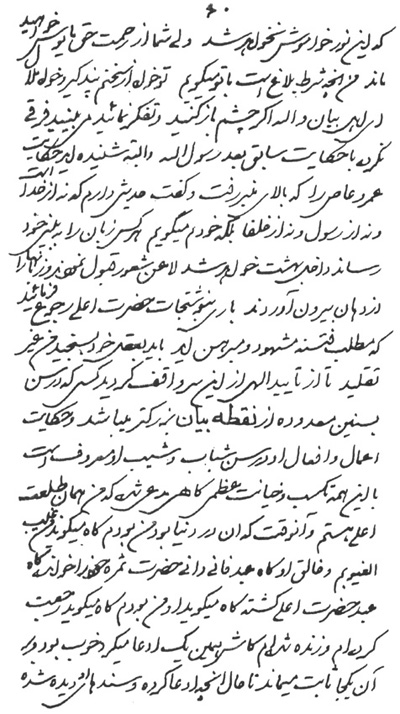 ۶۰
که این نور خدا موش نخواهد شد ولی شما از رحمت حق مأیوس خواهید
ماند من آنچه شرط بلاغ است با تو میگویم تو خواه از سخنم پند گیر و خواه ملال
ای اهل بیان والله اگر چشم باز کنید و تفکر نمائید می بینید فرقی
نکرده با حکایت سابق بعد رسول الله والبته شنیده اید حکایت
عمرو عاص را که بالای منبر رفت و گفت حدیثی دارم که نه از خداست
و نه از رسول و نه از خلفا بلکه خودم میگویم هر کس زبان را به بینی خود
رساند داخل بهشت خواهد شد لا عن شعور قبول نمودند و زبانها را
از دهان بیرون آوردند باری بنوشتجات حضرت اعلی رجوع فرمائید
که مطلب فتنه مشهود و مبرهن آید باید بعقل خود سنجید من غیر
تقلید تا از تأیید الهی از این سر واقف گردید کسی که در سن
بسنین معدوده از نقطه بیان بزرگتر میباشد و حکایت
اعمال و افعال او در سن شباب و شیب او معروف است
با این همه تکسب و خیانت عظمی گاهی مدعی شد که من همان طلعت
اعلی هستم و آنوقت که آن در دنیا بود من بودم گاه میگوید من غیب
الغیوبم و خالق او گاه عبد فانی دانی حضرت ثمره خود را خواند گاه
عبد حضرت اعلی گشته گاه میگوید او من بودم گاه میگوید رجعت
کرده ام و زنده شده ام کاش همین یک ادعا میکرد خوب بود و بر
آن یکجا ثابت میماند تا حال آنچه ادعا کرده و سندهای او دیده شده